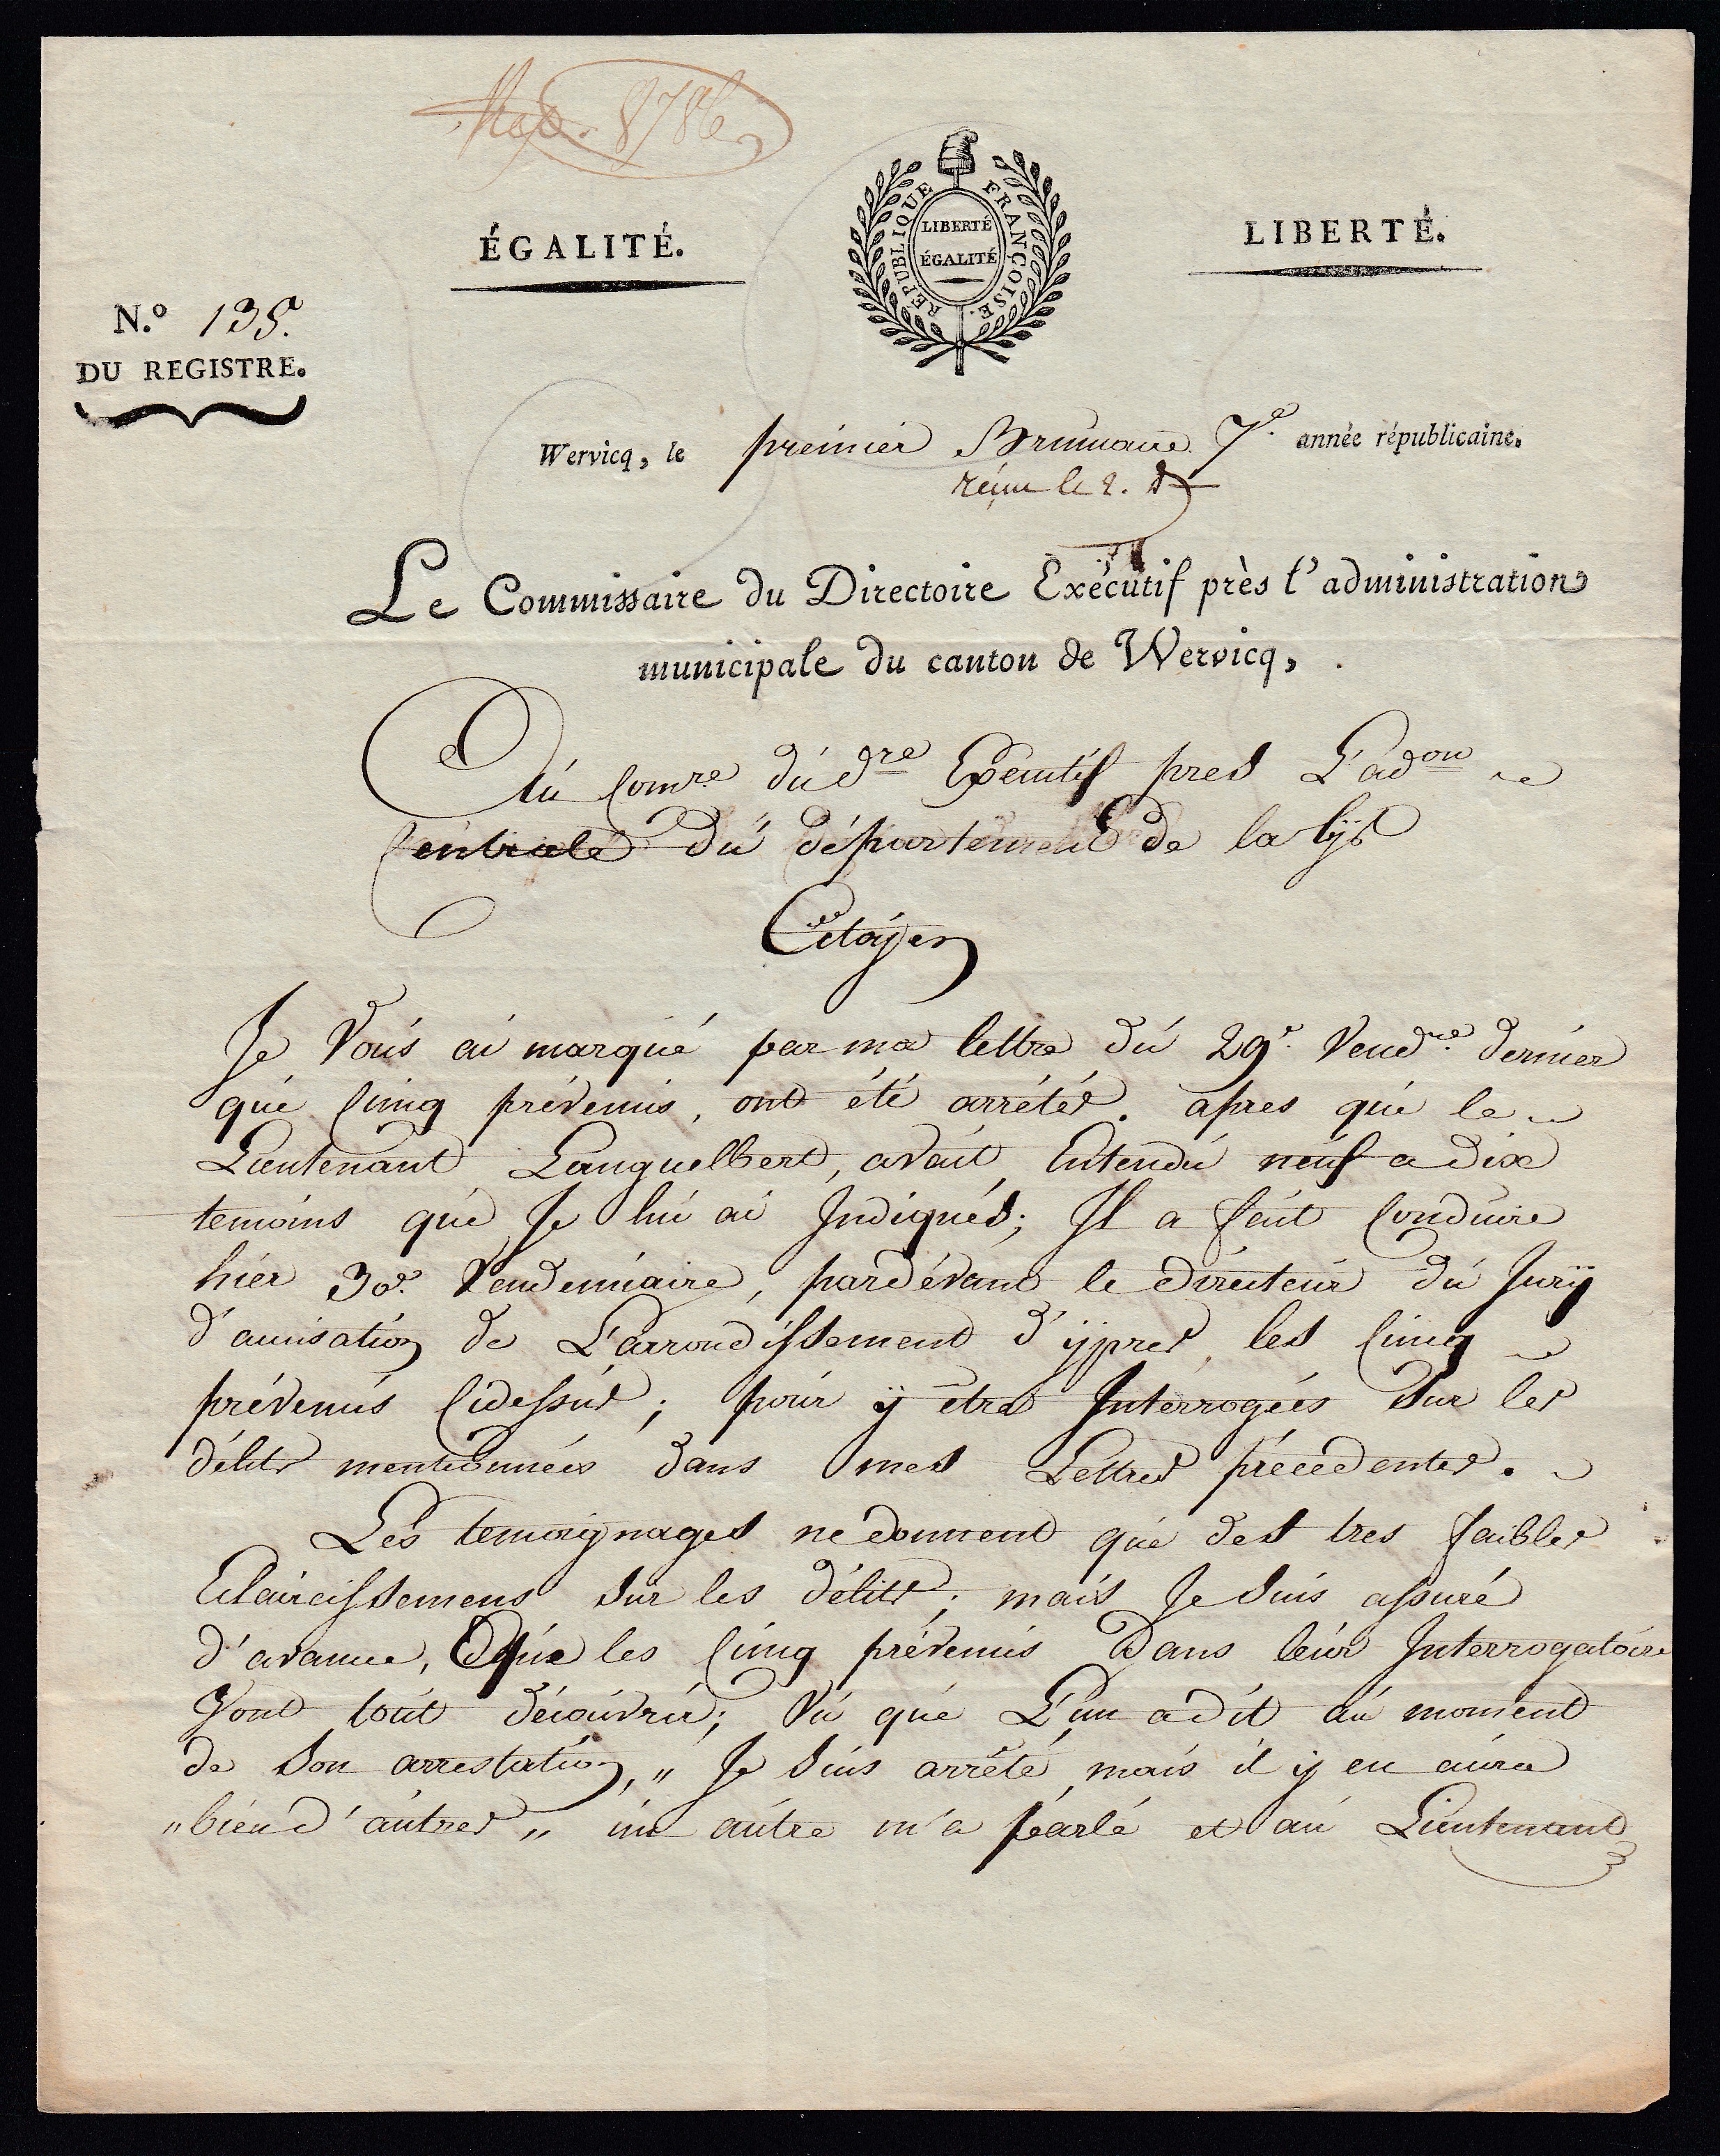 Rep. 8786
ÉGALITÉ.
RÉPUBLIQUE FRANÇOISE.
LIBERTÉ
ÉGALITÉ
LIBERTÉ.
N.º 135.
DU REGISTRE.
Wervicq, le premier Brumaire 7e. année républicaine.
réçue le 2. d
Le Commissaire du Directoire Exécutif près l'administration
municipale du canton de Wervicq,
Au Comre du dre Executif pres L'adon
Centrale du département de la lys
Citoÿen
Je Vous ai marqué par ma lettre du 29e. Vendre. dernier
que Cinq prévenus, ont été arrétés. apres que le
Lieutenant Languelbert, avait Entendu neuf a dix
temoins que Je lui ai Indiqués; Il a fait Conduire
hier 30e. Vendemiaire, pardévant le directeur du Jurÿ
d'accusation de L'arrondissement d'ÿpres, les Cinq
prévenus Cidessus; pour ÿ être Interrogées Sur les
délits mentionnées dans mes Lettres précedentes.
Les temoignages ne donnent que des tres faibles
Eclaircissemens Sur les délits; mais Je Suis assuré
d'avance, que les Cinq prévenus dans leur Interrogatoire
Vont tout découvrir; Vu que L'un a dit au moment
de Son arrestation, „ Je Suis arrêté, mais il y en aura
„ bien d'autres „ un autre m'a parlé et au Lieutenant